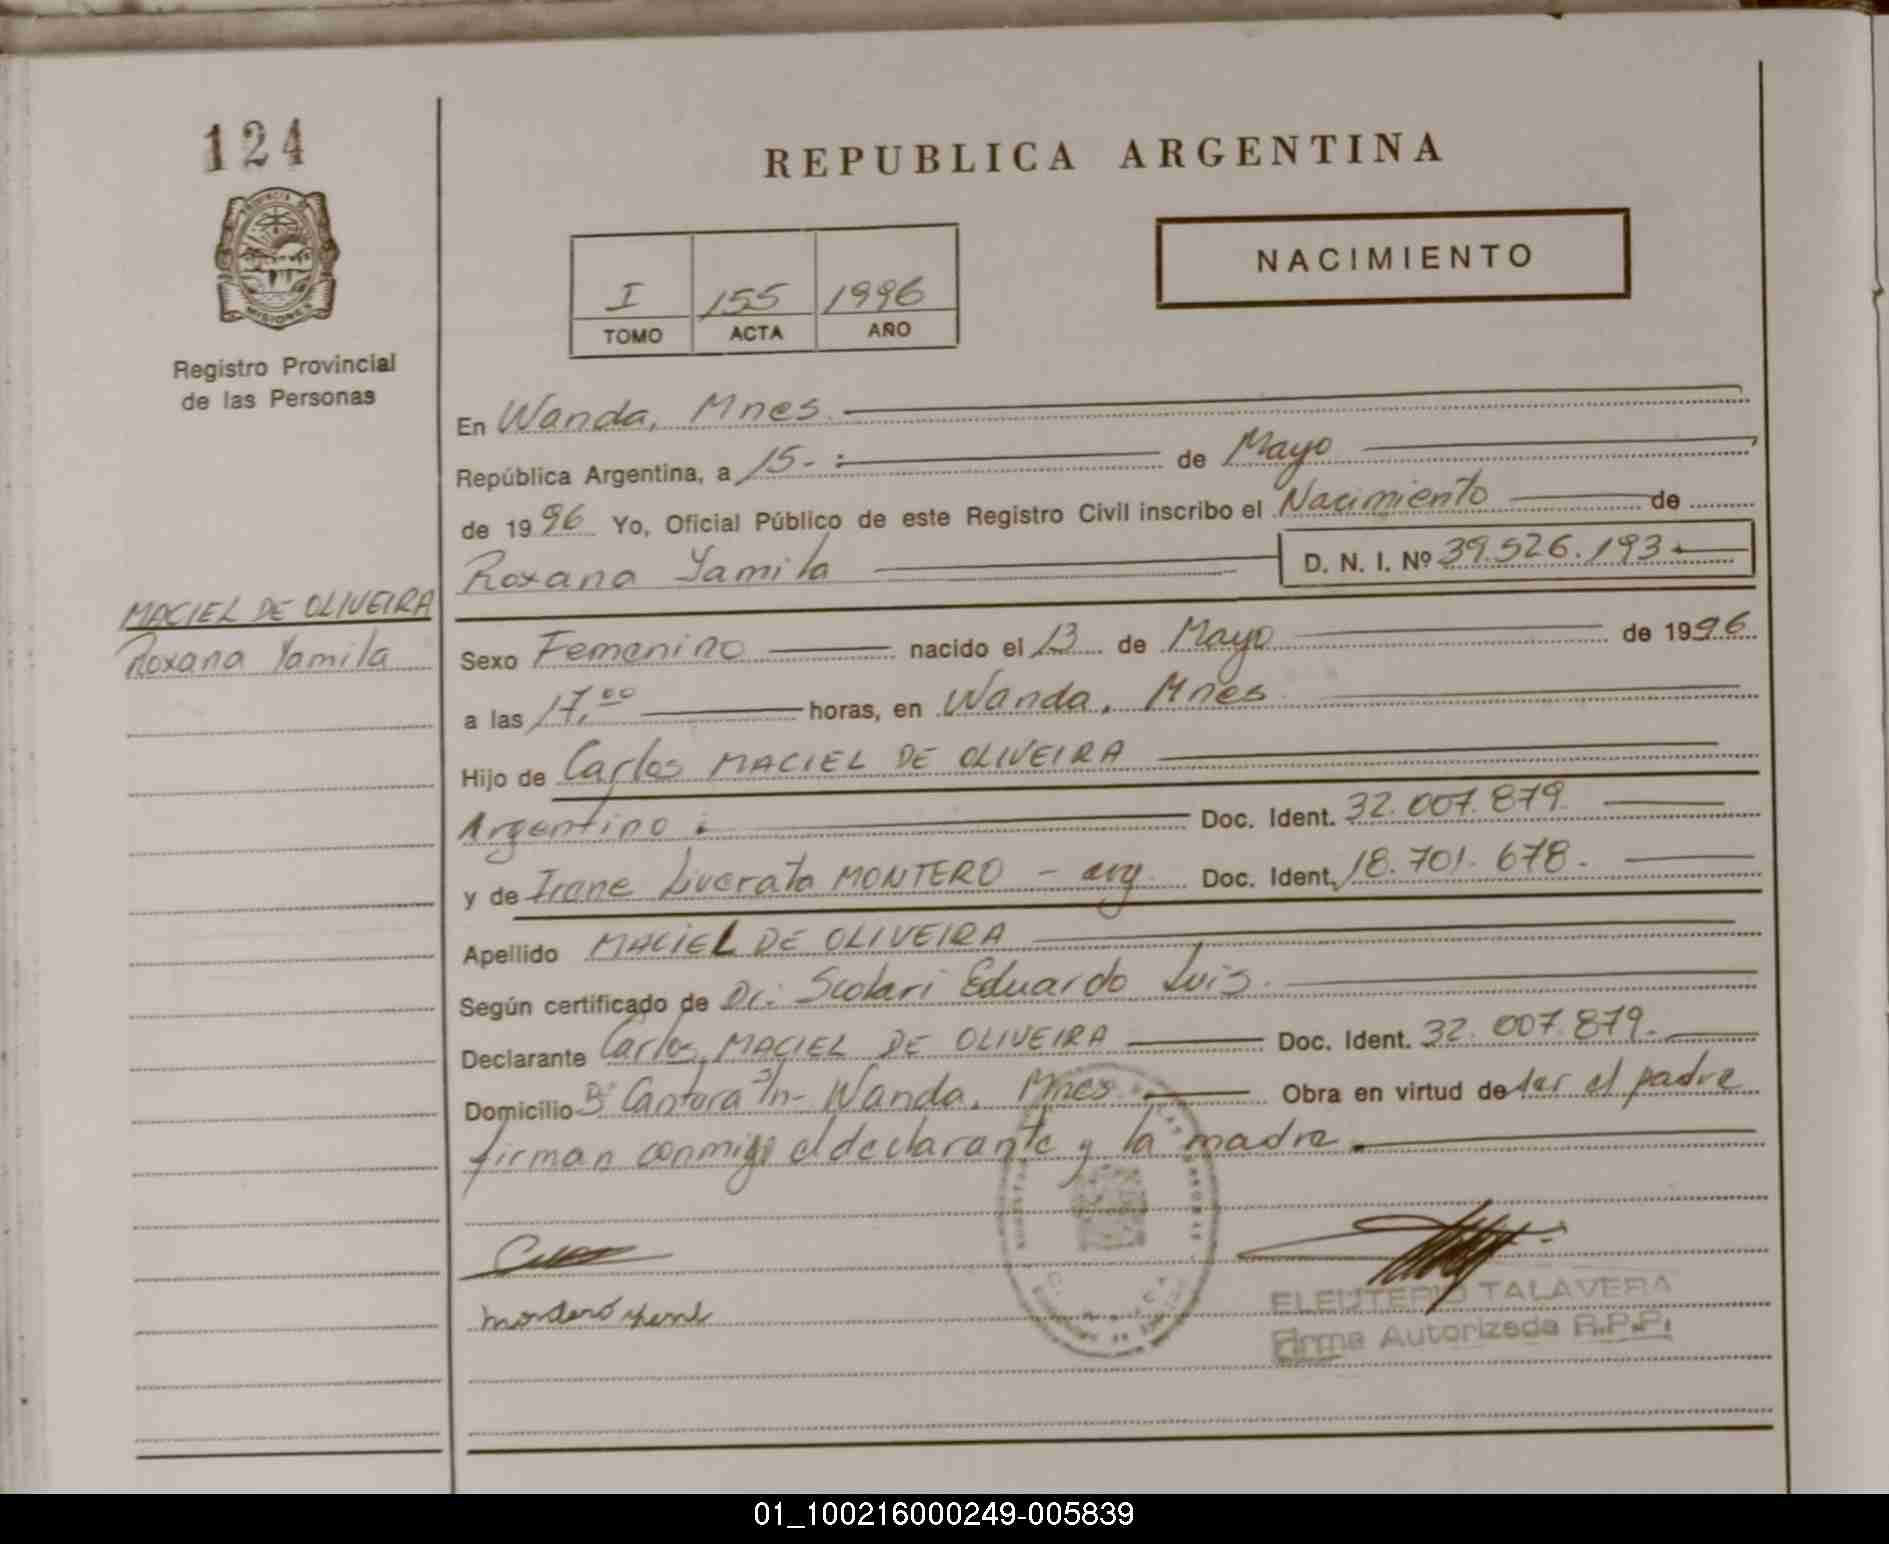 124
REPUBLICA ARGENTINA
NACIMIENTO
I 155 1996
TOMO ACTA AÑO
MISIONES
Registro Provincial
de las Personas
En Wanda, Mnes.
República Argentina, a 15- de Mayo
de 1996 Yo, Oficial Público de este Registro Civil inscribo el Nacimiento de
Roxana Yamila D. N. I. Nº 39.526.193
MACIEL DE OLIVEIRA
Roxana Yamila
Sexo Femenino nacido el 13 de Mayo de 1996
a las 17,00 horas, en Wanda, Mnes
Hijo de Carlos MACIEL DE OLIVEIRA
Argentino Doc. Ident. 32.007.879
y de Irene Liverata MONTERO - arg. Doc. Ident. 18.701.678.
Apellido MACIEL DE OLIVEIRA
Según certificado de Dr. Scolari Eduardo Luis.
Declarante Carlos MACIEL DE OLIVEIRA Doc. Ident. 32.007.879.
Domicilio Bº Cantera S/n- Wanda, Mnes Obra en virtud de ser el padre
firman conmigo el declarante y la madre.
ELEUTERIO TALAVERA
Firma Autorizada R.P.P.
01_100216000249-005839